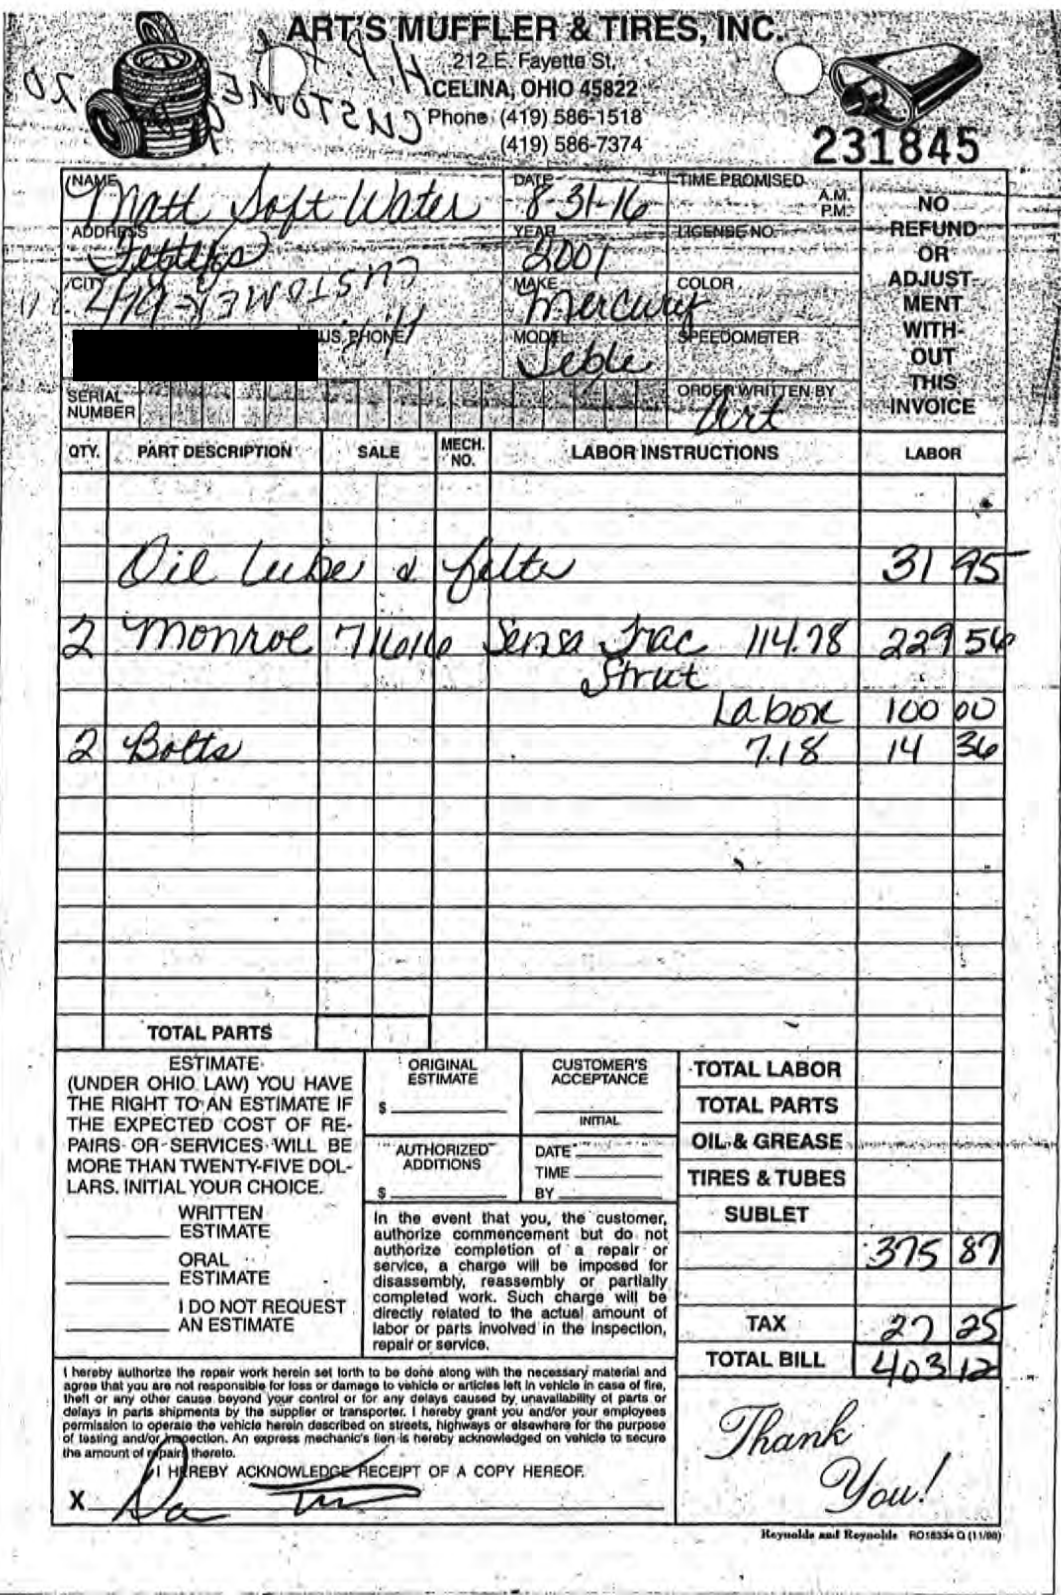 ART'S MUFFLER & TIRES, INC.
212 E. Fayette St.
CELINA, OHIO 45822
Phone (419) 586-1518
(419) 586-7374
231845
NAME Matt Soft Water
DATE 8-31-16
TIME PROMISED A.M. P.M.
ADDRESS
YEAR 2001
LICENSE NO.
CITY
CUSTOMER
MAKE Mercury
COLOR
US. PHONE
MODEL Seble
SPEEDOMETER
SERIAL NUMBER
ORDER WRITTEN BY Art
NO REFUND OR ADJUST-MENT WITH-OUT THIS INVOICE
QTY. PART DESCRIPTION SALE MECH. NO. LABOR INSTRUCTIONS LABOR
Oil Lube & filter 31 95
2 Monroe 71616 Sensa Trac 114.78 229 56
Strut
Labor 100 00
2 Bolts 7.18 14 36
TOTAL PARTS
ESTIMATE
(UNDER OHIO LAW) YOU HAVE
THE RIGHT TO AN ESTIMATE IF
THE EXPECTED COST OF RE-
PAIRS OR SERVICES WILL BE
MORE THAN TWENTY-FIVE DOL-
LARS. INITIAL YOUR CHOICE.
WRITTEN
ESTIMATE
ORAL
ESTIMATE
I DO NOT REQUEST
AN ESTIMATE
ORIGINAL
ESTIMATE
$
CUSTOMER'S
ACCEPTANCE
INITIAL
AUTHORIZED
ADDITIONS
$
DATE
TIME
BY
In the event that you, the customer,
authorize commencement but do not
authorize completion of a repair or
service, a charge will be imposed for
disassembly, reassembly or partially
completed work. Such charge will be
directly related to the actual amount of
labor or parts involved in the inspection,
repair or service.
TOTAL LABOR
TOTAL PARTS
OIL & GREASE
TIRES & TUBES
SUBLET
375 87
TAX 27 25
TOTAL BILL 403 12
I hereby authorize the repair work herein set forth to be done along with the necessary material and
agree that you are not responsible for loss or damage to vehicle or articles left in vehicle in case of fire,
theft or any other cause beyond your control or for any delays caused by unavailability of parts or
delays in parts shipments by the supplier or transporter. I hereby grant you and/or your employees
permission to operate the vehicle herein described on streets, highways or elsewhere for the purpose
of testing and/or inspection. An express mechanic's lien is hereby acknowledged on vehicle to secure
the amount of repairs thereto.
I HEREBY ACKNOWLEDGE RECEIPT OF A COPY HEREOF.
X
Thank
You!
Reynolds and Reynolds RO16334 Q (11/00)